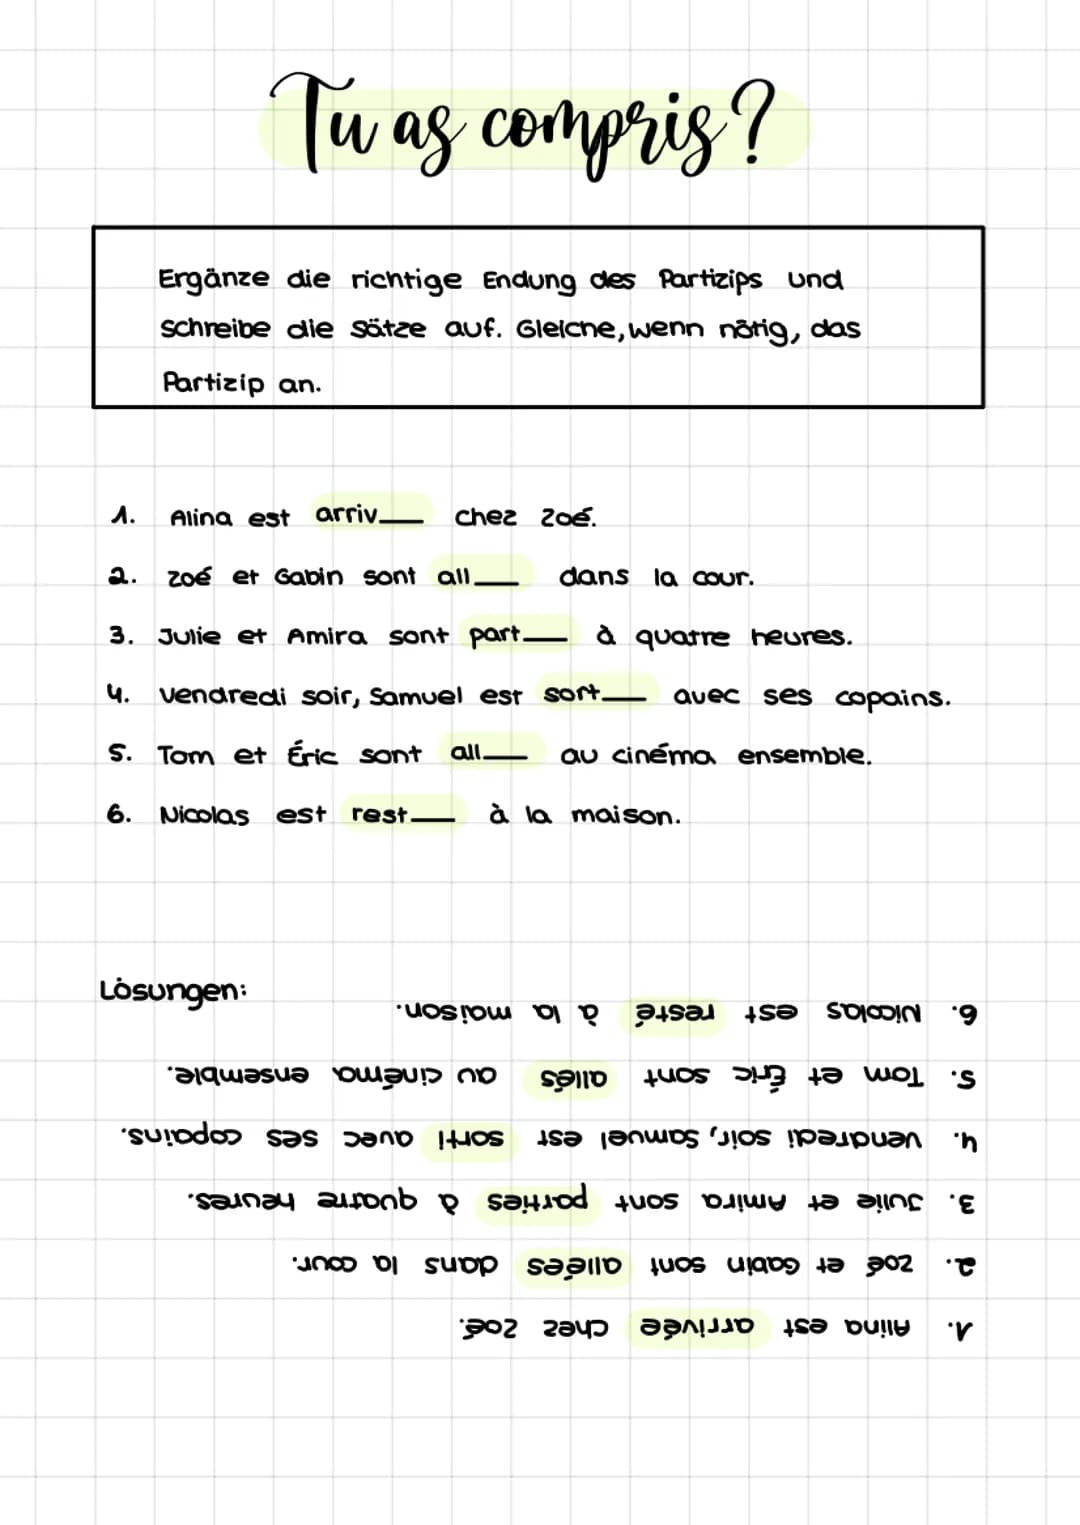 Tu as compris?
Ergänze die richtige Endung des Partizips und
schreibe die Sätze auf. Gleiche, wenn nötig, das
Partizip an.
1. Alina est arriv___ chez Zoé.
2. Zoé et Gabin sont all___ dans la cour.
3. Julie et Amira sont part___ à quatre heures.
4. Vendredi soir, Samuel est sort___ avec ses copains.
5. Tom et Éric sont all___ au cinéma ensemble.
6. Nicolas est rest___ à la maison.
Lösungen:
1. Alina est arrivée chez Zoé.
2. Zoé et Gabin sont allées dans la cour.
3. Julie et Amira sont parties à quatre heures.
4. Vendredi soir, Samuel est sorti avec ses copains.
5. Tom et Éric sont allés au cinéma ensemble.
6. Nicolas est resté à la maison.